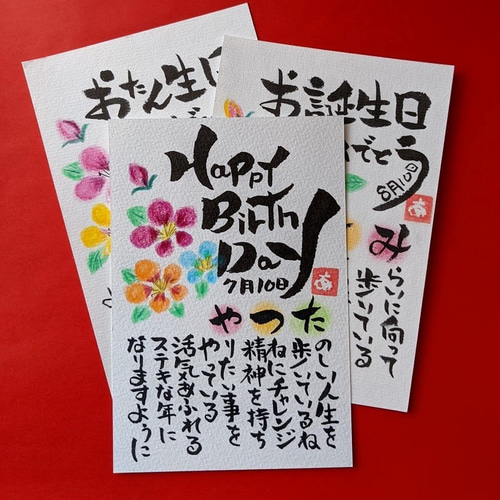 Happy
Birth
Day
7月10日
あ
たのしい人生を
歩いているね
つねにチャレンジ
精神を持ち
やりたい事を
やっている
活気あふれる
ステキな年に
なりますように
おたん生日
お誕生日
でとう
8月10日
あ
みらいに向って
歩いている